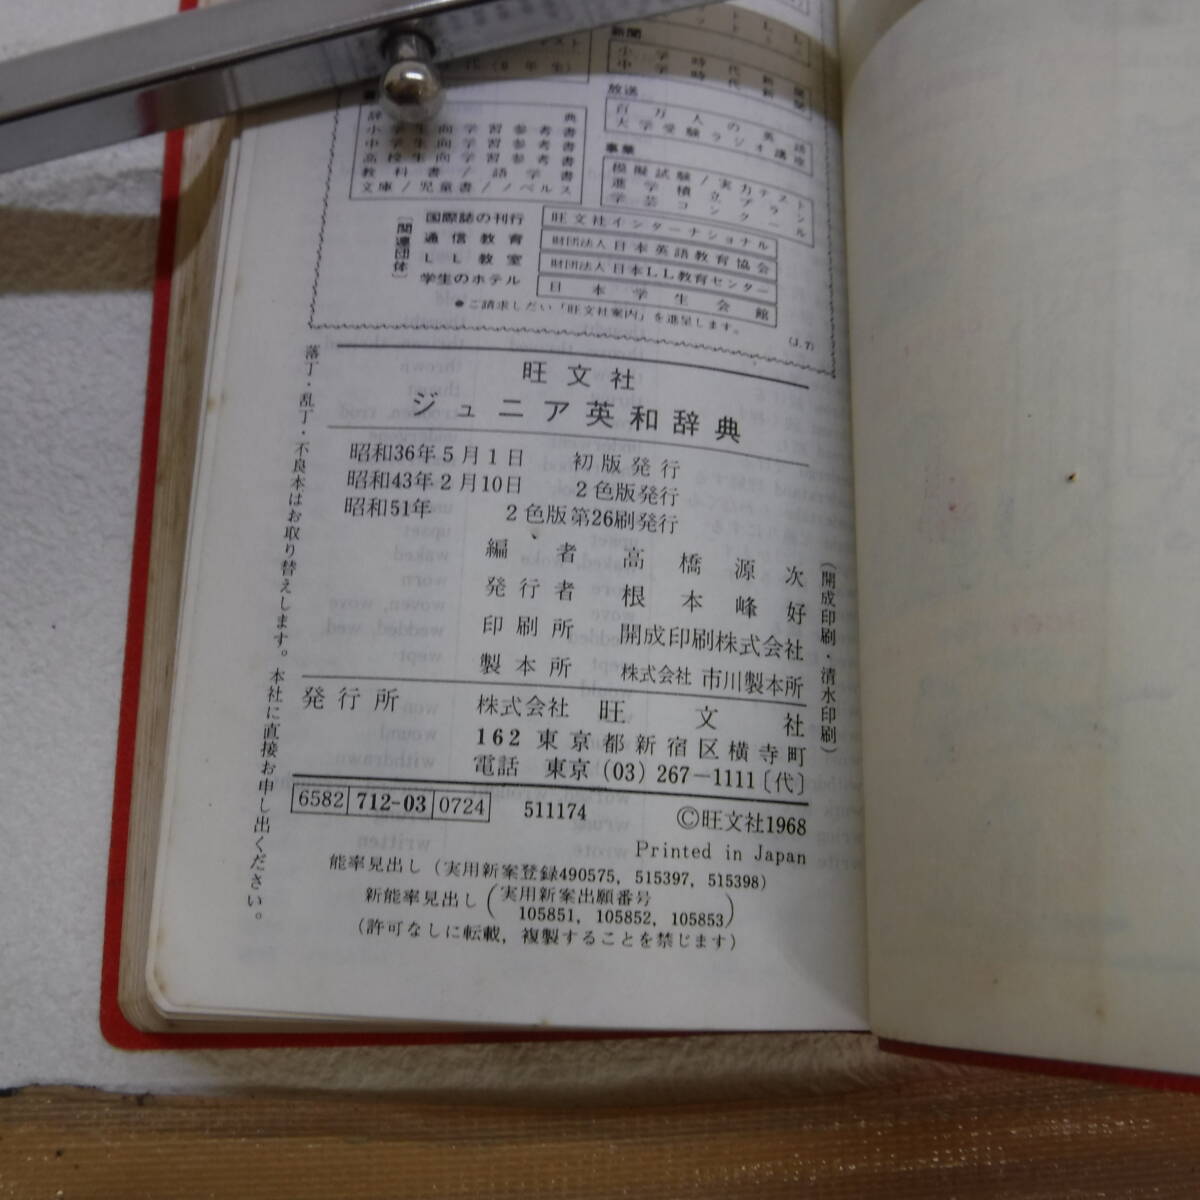 新聞
小学時代新聞
中学時代新聞
放送
百万人の英語
大学受験ラジオ講座
事業
模擬試験/実力テスト
進学積立プラン
学芸コンクール
辞典
小学生向学習参考書
中学生向学習参考書
高校生向学習参考書
教科書/語学書
文庫/児童書/ノベルス
〔関連団体〕
国際誌の刊行 旺文社インターナショナル
通信教育 財団法人日本英語教育協会
LL教室 財団法人日本LL教育センター
学生のホテル 日本学生会館
●ご請求しだい「旺文社案内」を進呈します。
(J.7)
旺文社
ジュニア英和辞典
昭和36年5月1日 初版発行
昭和43年2月10日 2色版発行
昭和51年 2色版第26刷発行
編者 高橋源次
発行者 根本峰好
印刷所 開成印刷株式会社
製本所 株式会社市川製本所
(開成印刷・清水印刷)
発行所 株式会社 旺文社
162 東京都新宿区横寺町
電話 東京(03)267-1111〔代〕
6582 712-03 0724 511174 ©旺文社1968
Printed in Japan
能率見出し(実用新案登録490575, 515397, 515398)
新能率見出し(実用新案出願番号
105851, 105852, 105853)
(許可なしに転載,複製することを禁じます)
落丁・乱丁・不良本はお取り替えします。本社に直接お申し出ください。